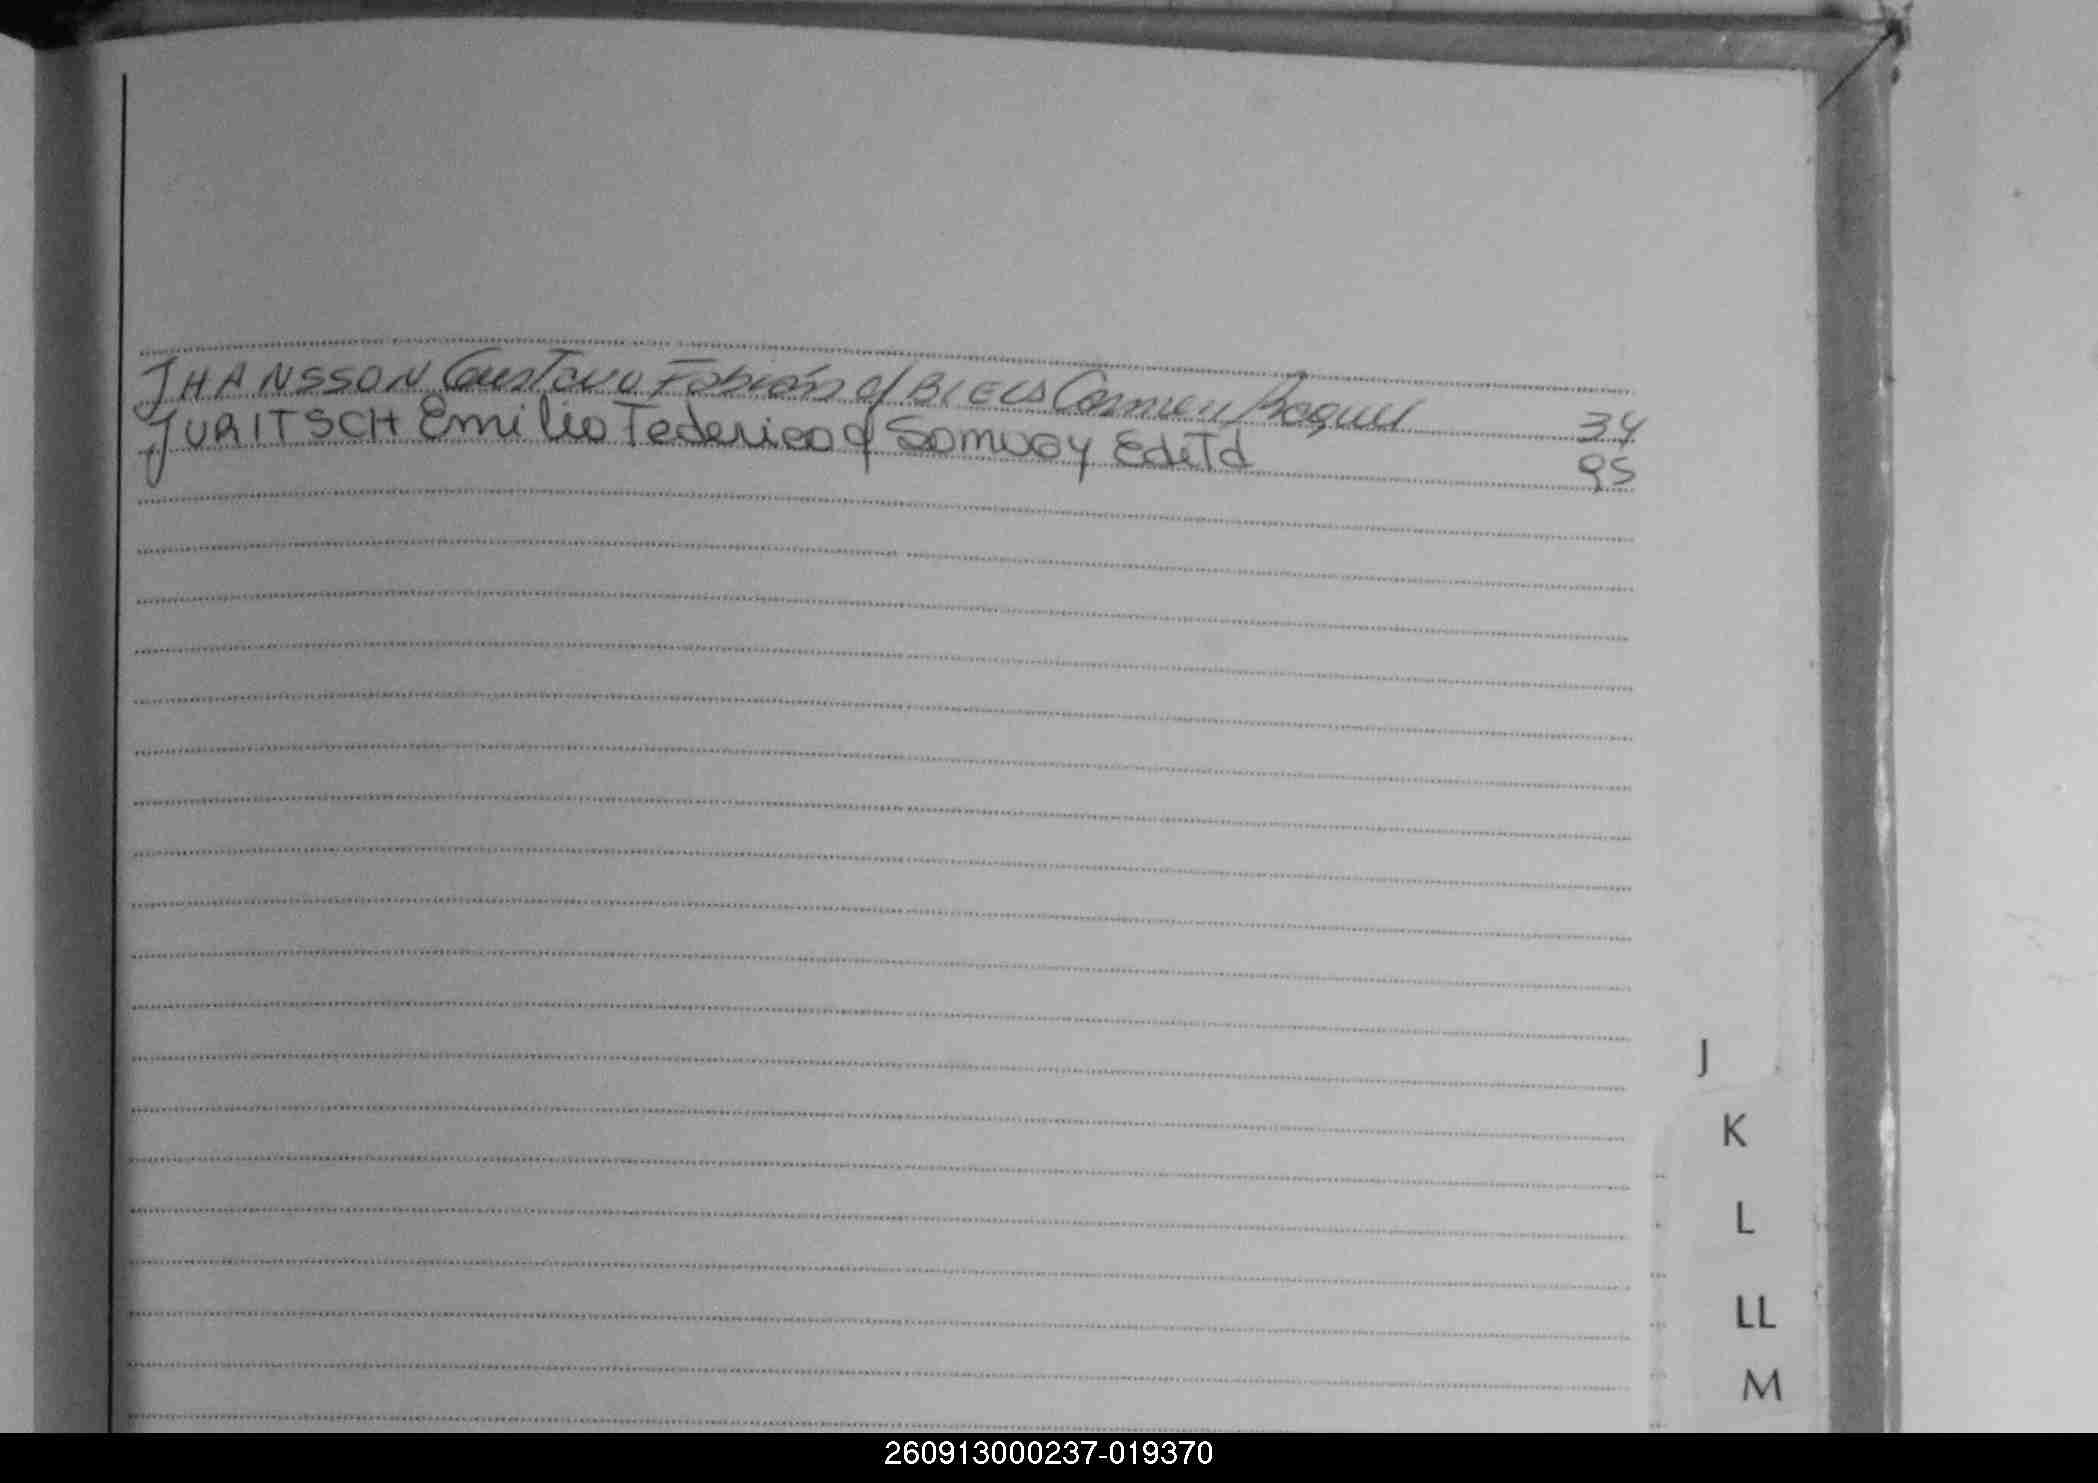 JHANSSON Gustavo Fabián c/ BIELS Carmen Raquel 34
JURITSCH Emilio Federico c/ Samuoy Edita 95
J
K
L
LL
M
260913000237-019370